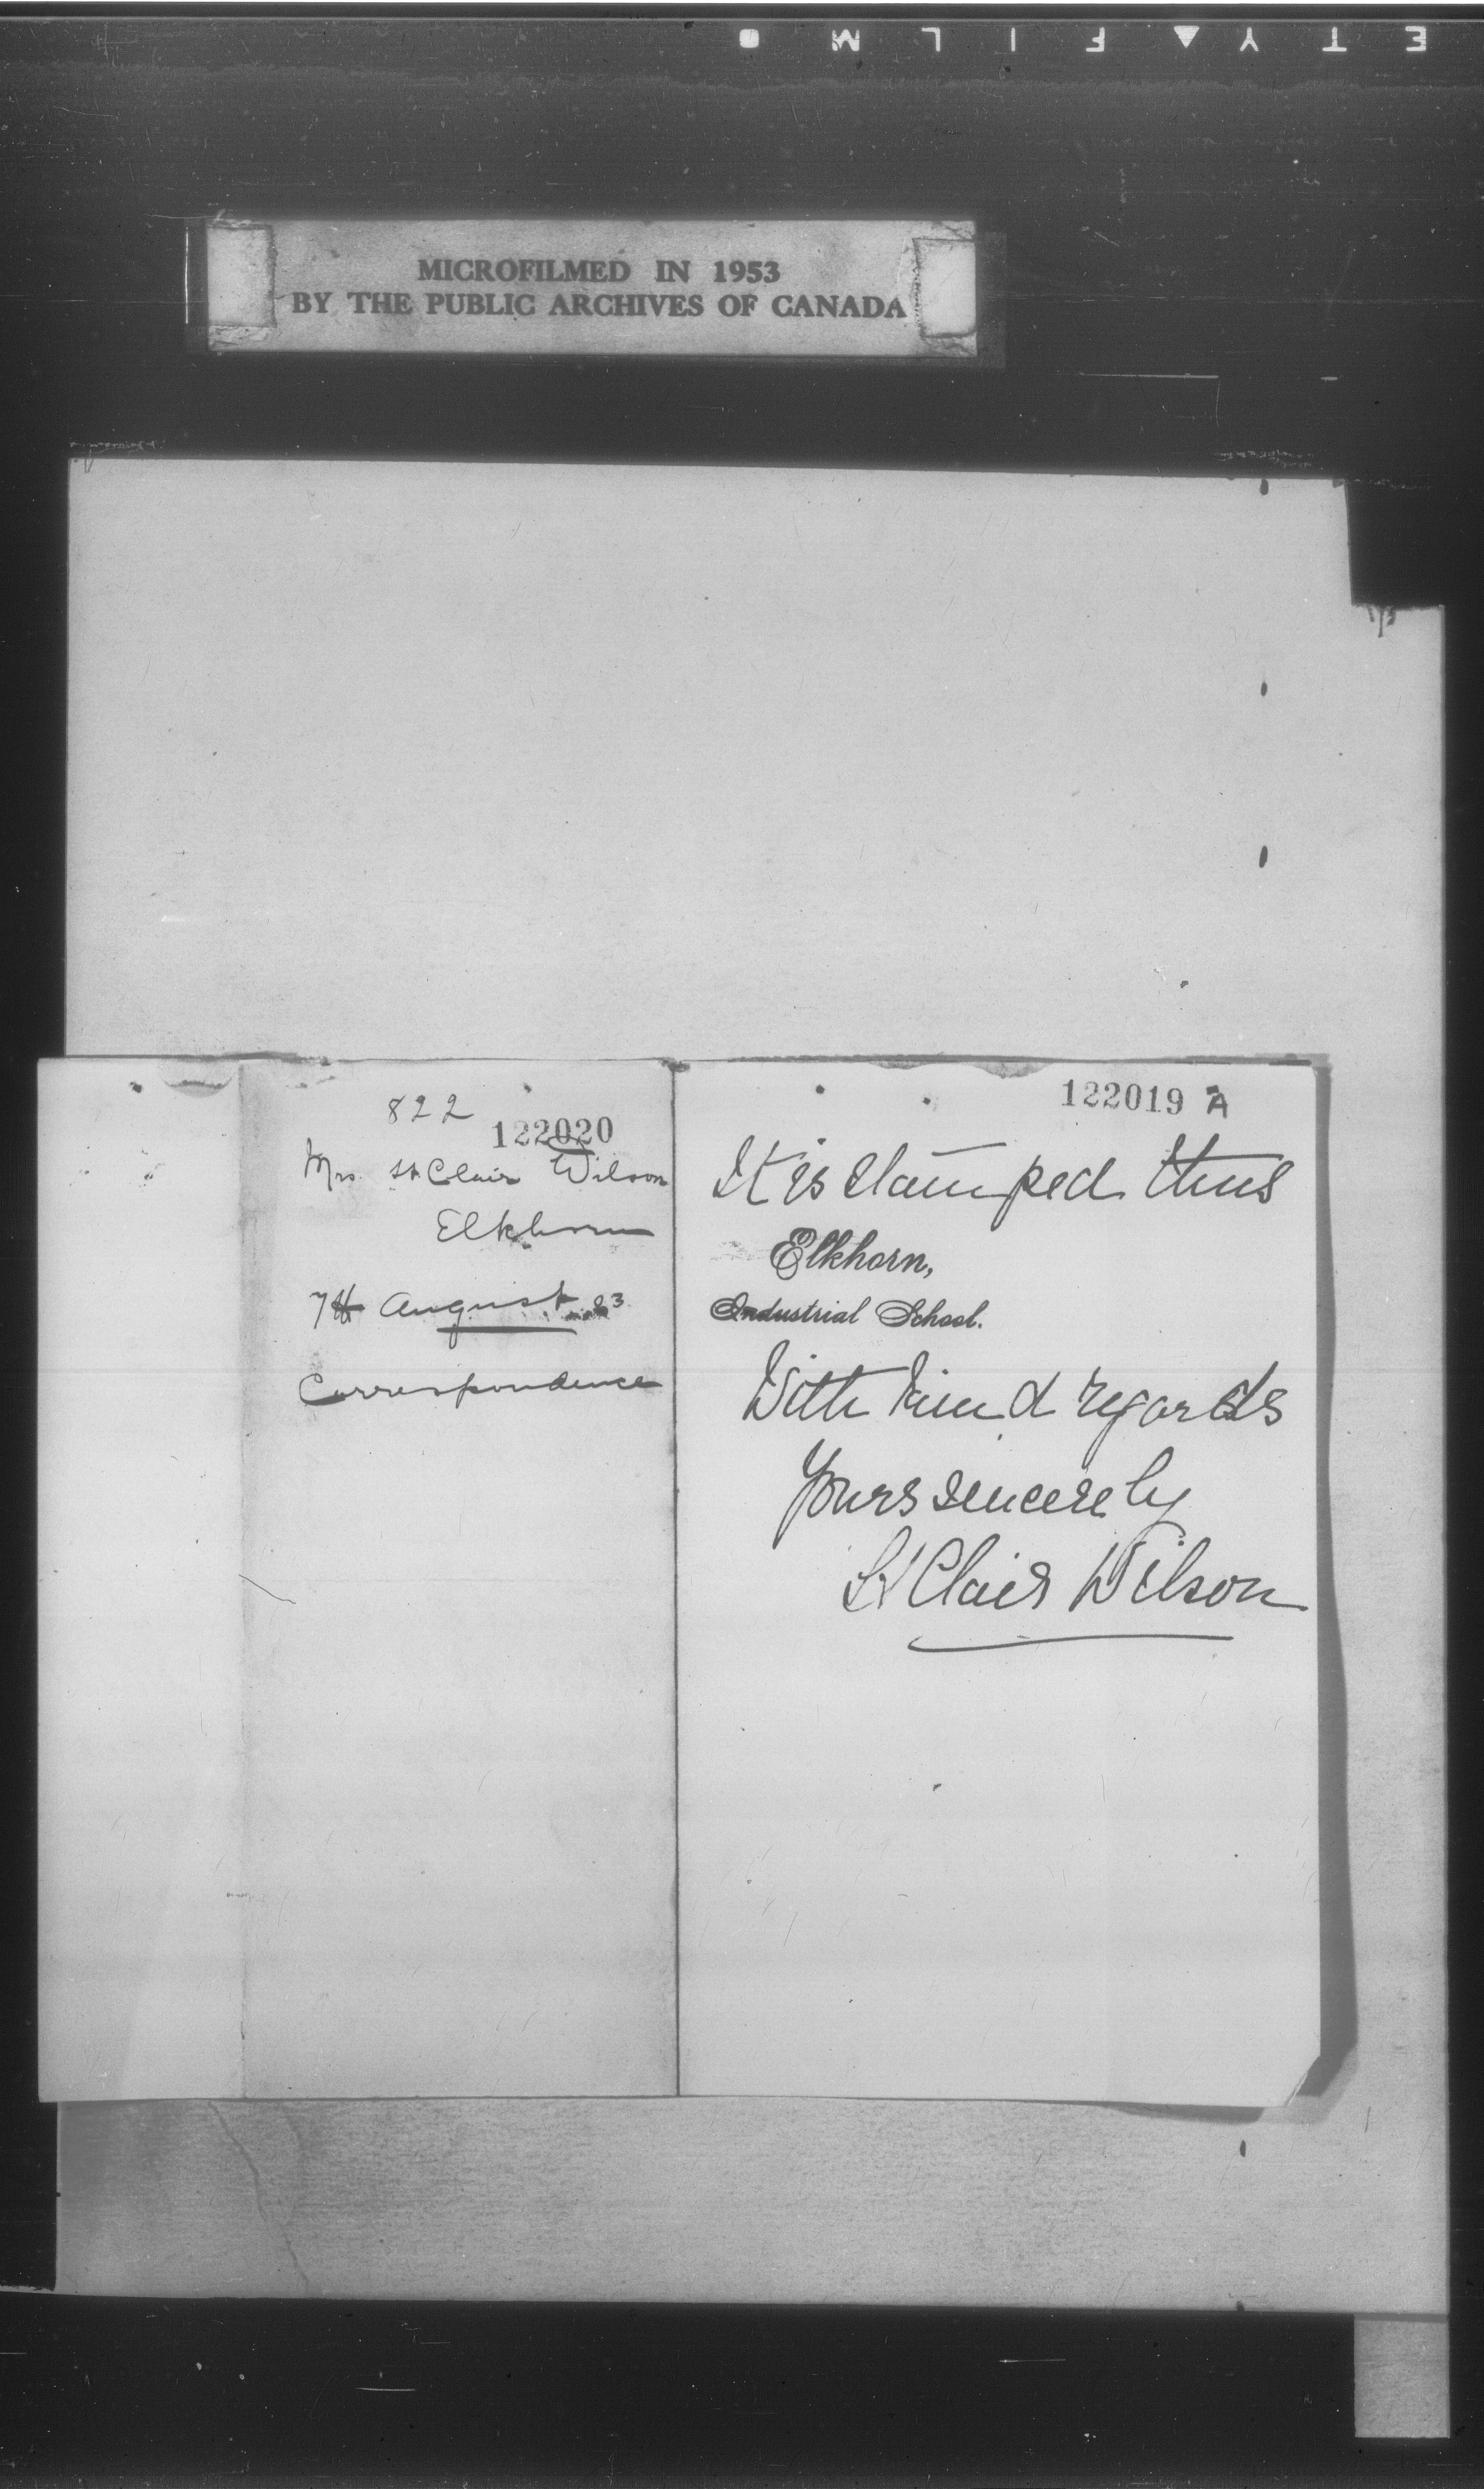 MICROFILMED IN 1953
BY THE PUBLIC ARCHIVES OF CANADA
822
122020
Mrs. St Clair Wilson
Elkhorn
7th August 93
Correspondence
122019 A
It is stamped thus
Elkhorn,
Industrial School.
With kind regards
Yours sincerely
St Clair Wilson